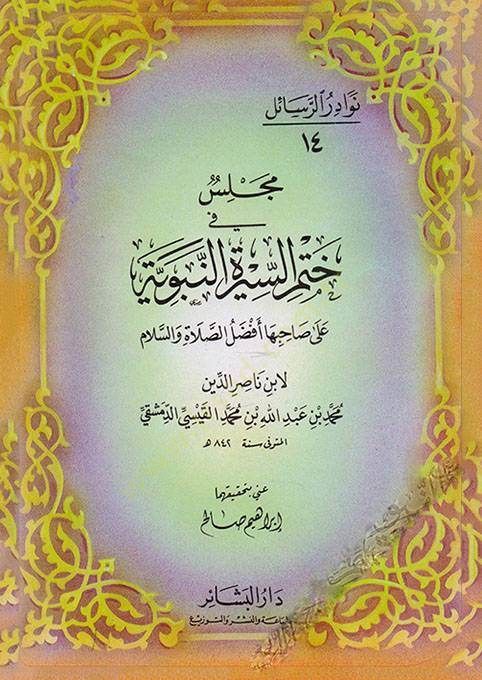 نَوَادِرُ الرَّسَائِل
١٤
مَجْلِسٌ
فِي
خَتْمِ السِّيرَةِ النَّبَوِيَّةِ
عَلَى صَاحِبِهَا أَفْضَلُ الصَّلَاةِ وَالسَّلَام
لابنِ نَاصِرِ الدِّين
مُحَمَّد بْنِ عَبْدِ اللهِ بْنِ مُحَمَّد القَيْسِيِّ الدِّمَشْقِيِّ
المتوفى سنة ٨٤٢ هـ
عني بتحقيقها
إبراهيم صالح
دَارُ البَشَائِر
والنشر والتوزيع